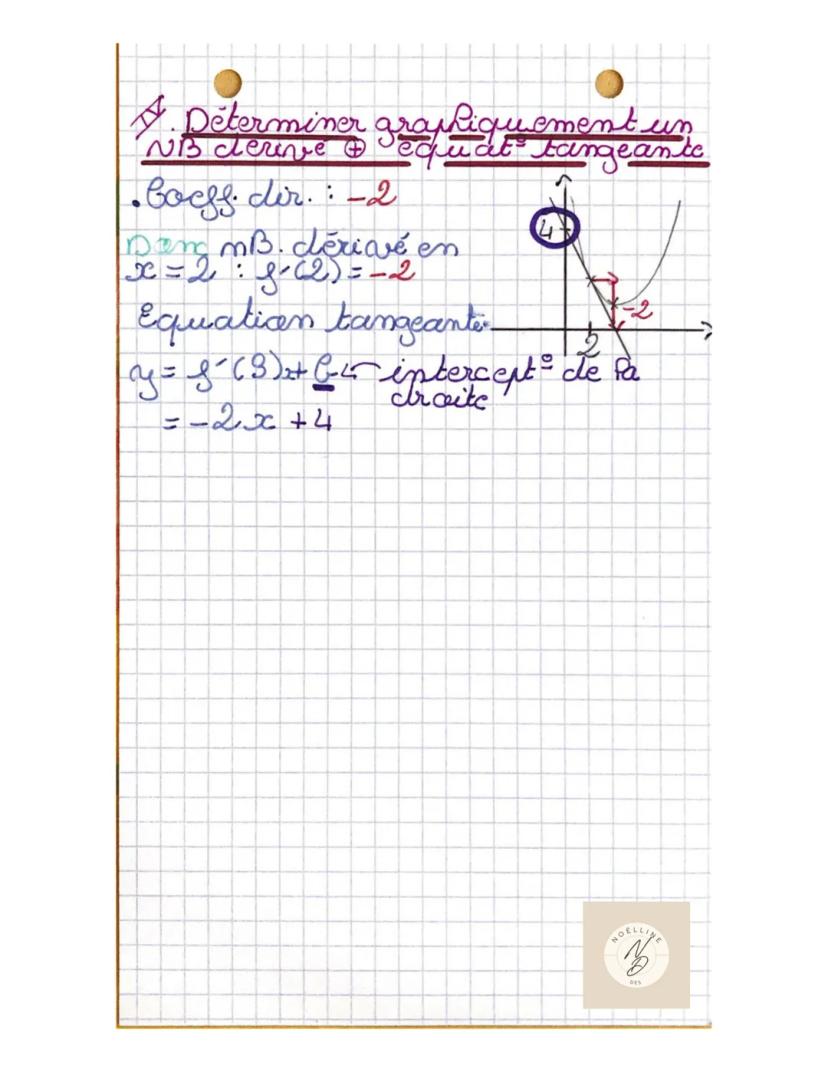 IV. Déterminer graphiquement un
NB dérivé ⊕ équat° tangeante
• Coeff. dir. : -2
4
Donc nB. dérivé en
x = 2 : f'(2) = -2
-2
Equation tangeante
2
y = f'(3)x + b ← intercept° de la
droite
= -2x + 4
NOËLLINE
ND
DES